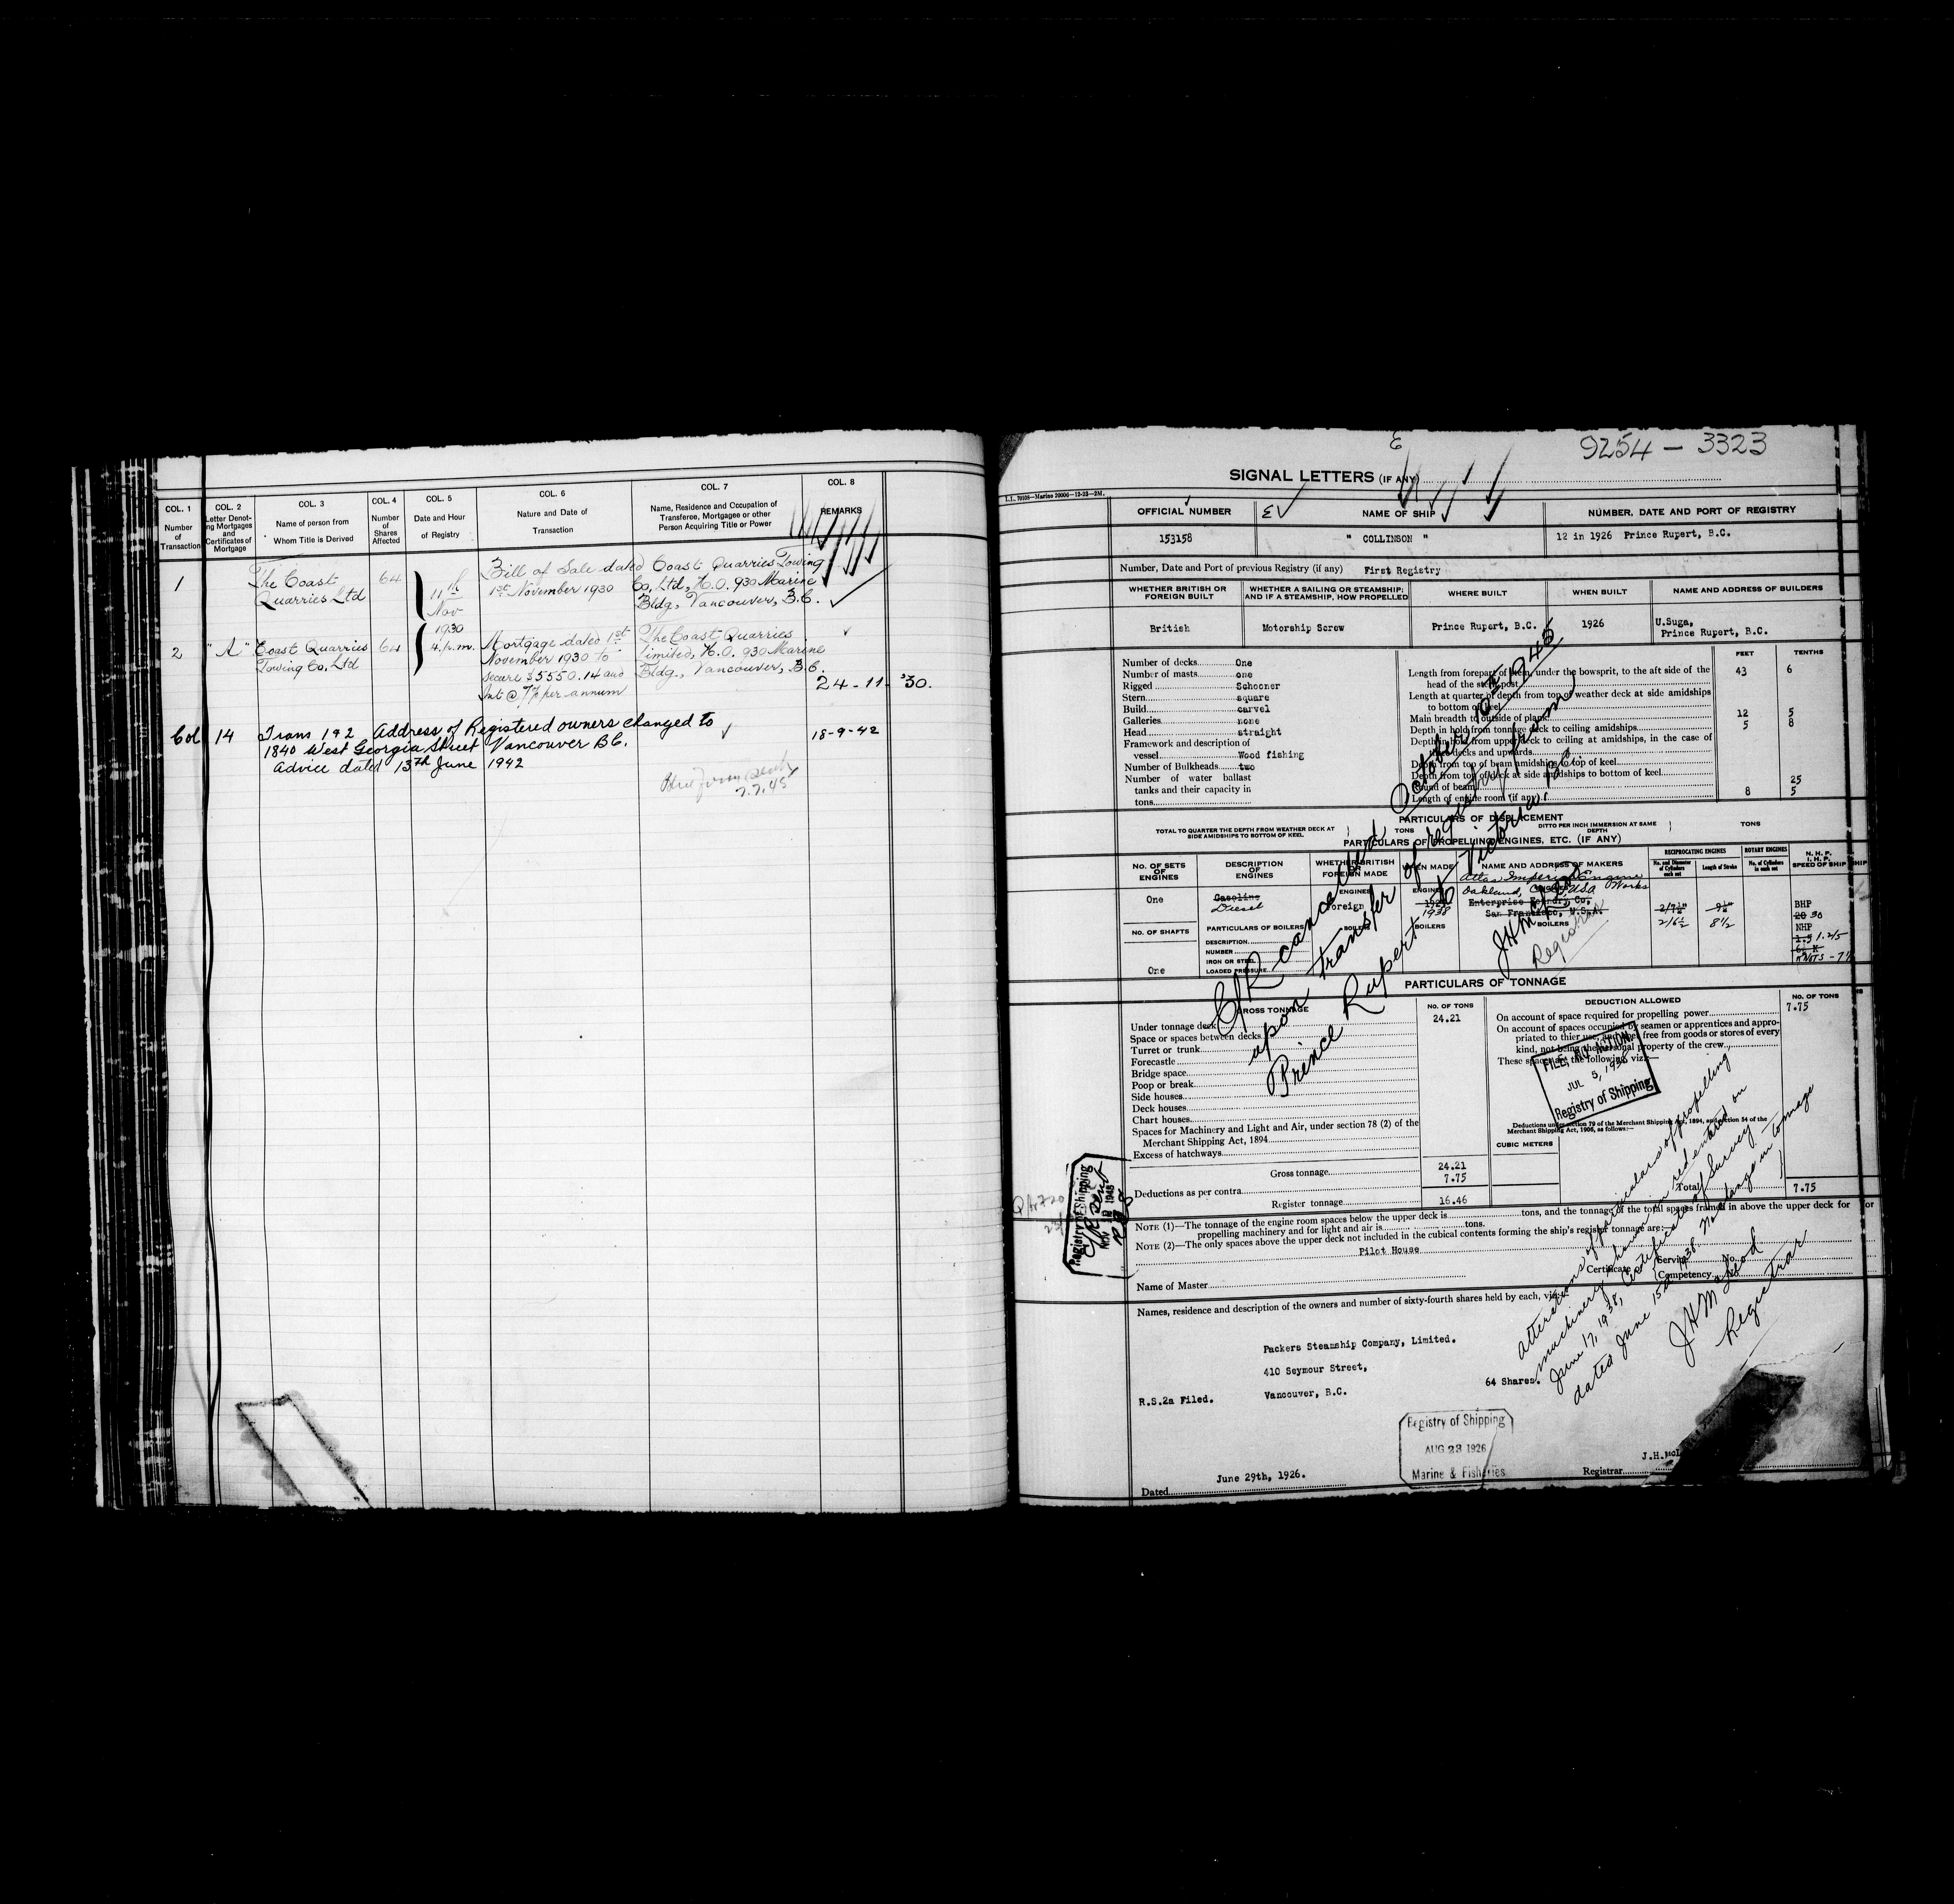 COL. 1
Number
of
Transaction
COL. 2
Letter Denot-
ing Mortgages
and
Certificates of
Mortgage
COL. 3
Name of person from
Whom Title is Derived
COL. 4
Number
of
Shares
Affected
COL. 5
Date and Hour
of Registry
COL. 6
Nature and Date of
Transaction
COL. 7
Name, Residence and Occupation of
Transferee, Mortgagee or other
Person Acquiring Title or Power
COL. 8
REMARKS
1
The Coast
Quarries Ltd
64
11th
Nov
1930
4. p.m.
Bill of Sale dated
1st November 1930
Coast Quarries Towing
Co, Ltd, H.O. 930 Marine
Bldg, Vancouver, B.C.
2
"A"
Coast Quarries
Towing Co, Ltd
64
Mortgage dated 1st
November 1930 to
secure $5550.14 and
Int @ 7% per annum
The Coast Quarries
Limited, H.O. 930 Marine
Bldg, Vancouver, B.C.
24-11-'30.
Col 14 Trans 1 & 2 Address of Registered owners changed to
1840 West Georgia Street Vancouver BC.
Advice dated 13th June 1942
18-9-42
7.7.45
E
9254 - 3323
SIGNAL LETTERS (IF ANY)
OFFICIAL NUMBER
NAME OF SHIP
NUMBER, DATE AND PORT OF REGISTRY
153158
" COLLINSON "
12 in 1926 Prince Rupert, B.C.
Number, Date and Port of previous Registry (if any) First Registry
WHETHER BRITISH OR
FOREIGN BUILT
WHETHER A SAILING OR STEAMSHIP;
AND IF A STEAMSHIP, HOW PROPELLED
WHERE BUILT
WHEN BUILT
NAME AND ADDRESS OF BUILDERS
British
Motorship Screw
Prince Rupert, B.C.
1926
U.Suga,
Prince Rupert, B.C.
Number of decks One
Number of masts one
Rigged Schooner
Stern square
Build carvel
Galleries none
Head straight
Framework and description of
vessel Wood fishing
Number of Bulkheads two
Number of water ballast
tanks and their capacity in
tons
FEET
TENTHS
Length from forepart of stem, under the bowsprit, to the aft side of the
head of the sternpost 43 6
Length at quarter of depth from top of weather deck at side amidships
to bottom of keel
Main breadth to outside of plank 12 5
Depth in hold from tonnage deck to ceiling amidships 5 8
Depth in hold from upper deck to ceiling at amidships, in the case of
three decks and upwards
Depth from top of beam amidships to top of keel
Depth from top of deck at side amidships to bottom of keel
Round of beam 25
Length of engine room (if any) 8 5
PARTICULARS OF DISPLACEMENT
TOTAL TO QUARTER THE DEPTH FROM WEATHER DECK AT
SIDE AMIDSHIPS TO BOTTOM OF KEEL
TONS
DITTO PER INCH IMMERSION AT SAME
DEPTH
TONS
PARTICULARS OF PROPELLING ENGINES, ETC. (IF ANY)
NO. OF SETS
OF
ENGINES
DESCRIPTION
OF
ENGINES
WHETHER BRITISH
OR
FOREIGN MADE
WHEN MADE
NAME AND ADDRESS OF MAKERS
RECIPROCATING ENGINES
No. and Diameter
of Cylinders
each set
Length of Stroke
ROTARY ENGINES
No. of Cylinders
in each set
N. H. P.
I. H. P.
SPEED OF SHIP
One
Gasoline
Diesel
ENGINES
Foreign
ENGINES
1938
Atlas Imperial Engine Works
Oakland, USA
Enterprise Foundry, Co,
San Francisco, U.S.A.
2/6½
8½
BHP
20 30
NHP
NO. OF SHAFTS
One
PARTICULARS OF BOILERS
DESCRIPTION
NUMBER
IRON OR STEEL
LOADED PRESSURE
BOILERS
BOILERS
BOILERS
C/R cancelled October 10th 1945
upon transfer of registry from
Prince Rupert to Victoria, BC
Registrar
PARTICULARS OF TONNAGE
GROSS TONNAGE
NO. OF TONS
Under tonnage deck 24.21
Space or spaces between decks
Turret or trunk
Forecastle
Bridge space
Poop or break
Side houses
Deck houses
Chart houses
Spaces for Machinery and Light and Air, under section 78 (2) of the
Merchant Shipping Act, 1894
Excess of hatchways
Gross tonnage 24.21
Deductions as per contra 7.75
Register tonnage 16.46
DEDUCTION ALLOWED
NO. OF TONS
On account of space required for propelling power 7.75
On account of spaces occupied by seamen or apprentices and appro-
priated to thier use, and free from goods or stores of every
kind, not being the personal property of the crew
These spaces are the following, viz.:—
FILE, NO ACTION.
JUL 5, 1938
Registry of Shipping
Deductions under section 79 of the Merchant Shipping Act, 1894, and section 54 of the
Merchant Shipping Act, 1906, as follows:—
CUBIC METERS
Total 7.75
Registry of Shipping
NOV 19 1945
NOTE (1)—The tonnage of the engine room spaces below the upper deck is tons, and the tonnage of the total spaces framed in above the upper deck for
propelling machinery and for light and air is tons.
NOTE (2)—The only spaces above the upper deck not included in the cubical contents forming the ship's register tonnage are:—
Pilot House
Name of Master
Certificate
Service No.
Competency No.
Names, residence and description of the owners and number of sixty-fourth shares held by each, viz:—
Packers Steamship Company, Limited.
410 Seymour Street,
Vancouver, B.C.
64 Shares.
R.S.2a Filed.
Alterations of particulars of propelling
machinery shown in red entered on
June 17, 1938, Certificate of Survey
dated June 15th 1938. No change in tonnage
JHMcLeod
Registrar
Registry of Shipping
AUG 23 1926
Marine & Fisheries
June 29th, 1926.
Dated
Registrar
J.H.McL